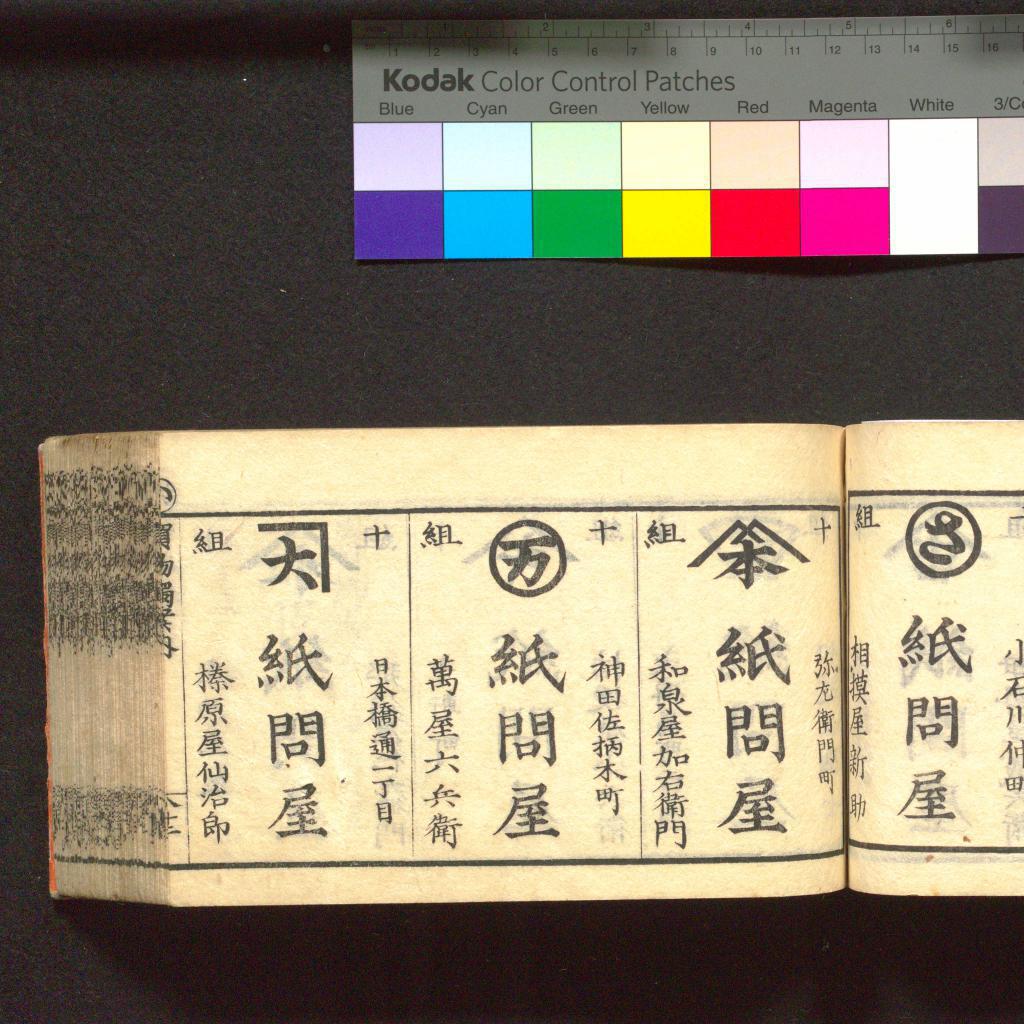 Kodak Color Control Patches
Blue Cyan Green Yellow Red Magenta White 3/Co
1 2 3 4 5 6
1 2 3 4 5 6 7 8 9 10 11 12 13 14 15 16
小石川仲町
さ
紙問屋
組
相摸屋新助
十
弥左衛門町
本
紙問屋
組
和泉屋加右衛門
十
神田佐柄木町
万
紙問屋
組
萬屋六兵衛
十
日本橋通一丁目
大
紙問屋
組
榛原屋仙治郎